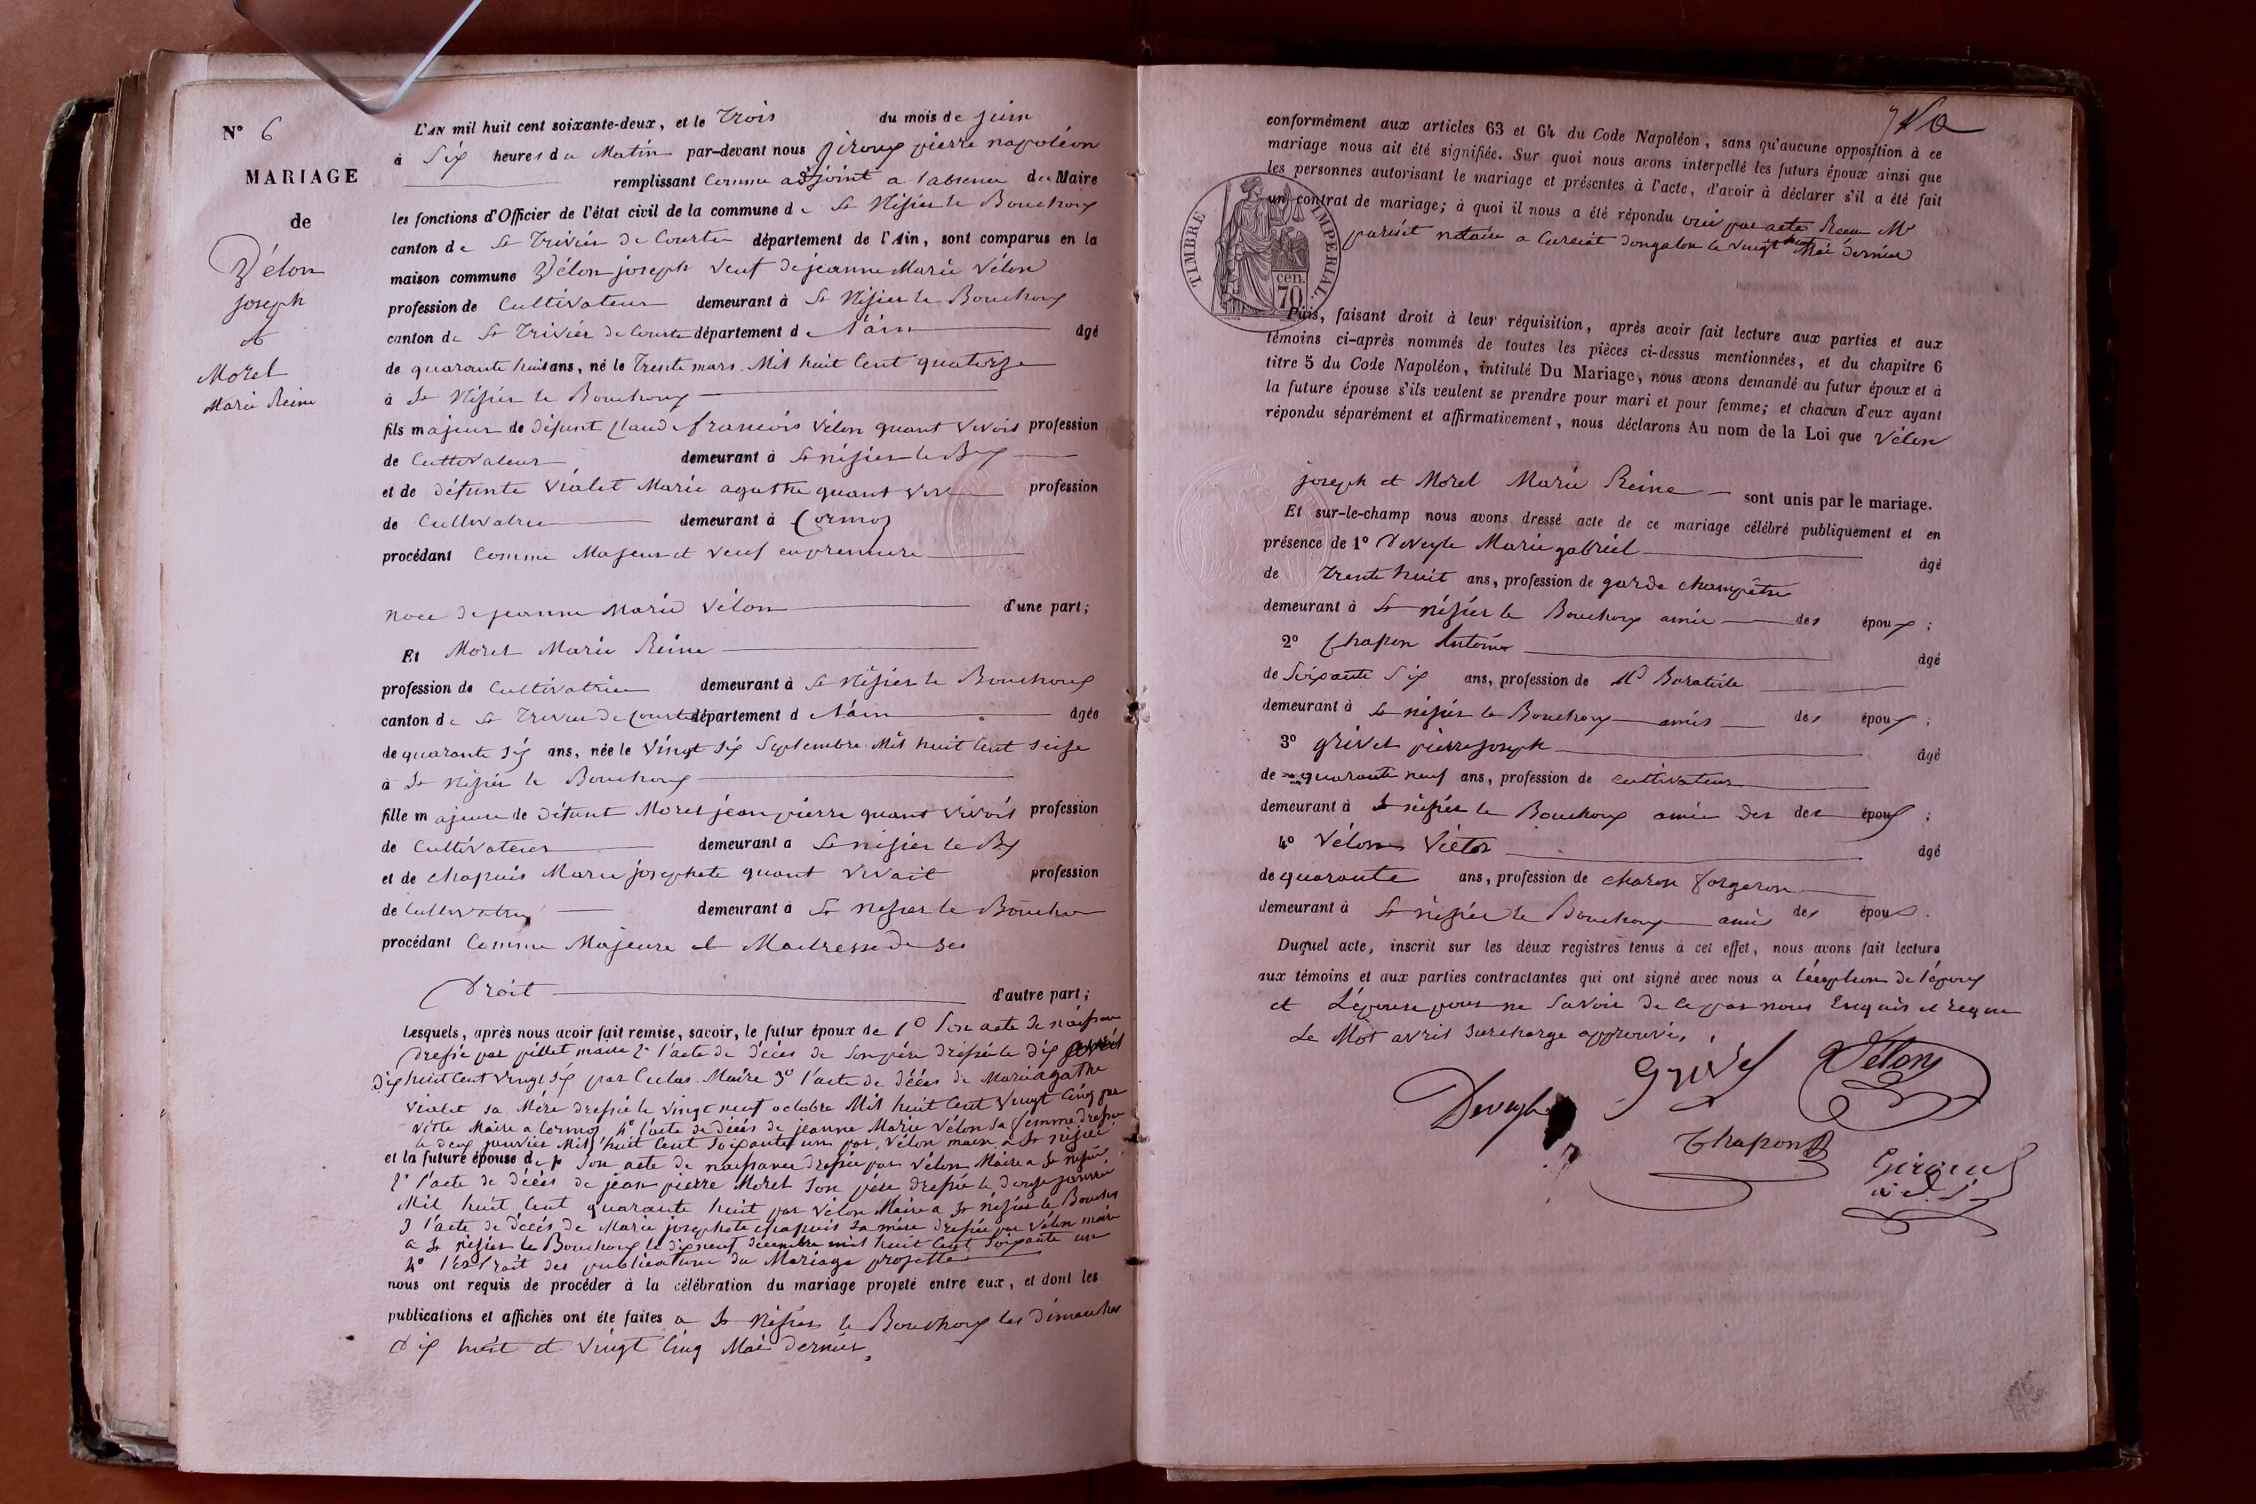 N° 6
MARIAGE
de
Vélon
joseph
et
Morel
Marie Reine
L'AN mil huit cent soixante-deux, et le trois du mois de juin
à Six heures du Matin par-devant nous giroux pierre napoléon
remplissant Comme adjoint a l'absence du Maire
les fonctions d'Officier de l'état civil de la commune de St Nisier le Bouchoux
canton de St Trivier de Courtes département de l'Ain, sont comparus en la
maison commune Vélon joseph veuf de jeanne Marie Vélon
profession de Cultivateur demeurant à St Nisier le Bouchoux
canton de St Trivier de Courte département de l'ain âgé
de quarante huit ans, né le Trente mars Mil huit Cent quatorze
à St Nisier le Bouchoux
fils majeur de défunt Claude francois Vélon quant vivois profession
de Cultivateur demeurant à St nisier le Bx
et de défunte Vialet Marie agathe quant viv profession
de Cultivatrice demeurant à Cormoz
procédant Comme Majeur et veuf en premiere
noce de jeanne Marie Vélon d'une part;
Et Morel Marie Reine
profession de Cultivatrice demeurant à St Nisier le Bouchoux
canton de St Trivier de Courte département de l'ain âgée
de quarante six ans, née le vingt six Septembre Mil huit Cent seize
à St Nisier le Bouchoux
fille majeure de défunt Morel jean pierre quant vivois profession
de Cultivateur demeurant a St nisier le Bx
et de chapuis Marie josephete quant vivait profession
de Cultivatrice demeurant à St Nisier le Bouchoux
procédant Comme Majeure et Maitresse de ses
Droit d'autre part;
Lesquels, après nous avoir fait remise, savoir, le futur époux de 1° Son acte de naissance
dressé par pillet maire 2° l'acte de décès de son père dréssé le dix avril
dix huit Cent vingt six par Cuclas Maire 3° l'acte de décès de Marie agathe
vialet sa Mère dressé le vingt neuf octobre Mil huit Cent vingt Cinq par
Maire a Cormoz 4° l'acte de décès de jeanne Marie Vélon sa femme dressé
le deux janvier Mil huit Cent Soixante un par Vélon maire a St nisier
et la future épouse de 1° Son acte de naissance dressé par Vélon Maire a St nisier
2° l'acte de décès de jean pierre Morel son père dressé le douze janvier
Mil huit Cent quarante huit par Vélon Maire a St nisier le Bouchoux
3 l'acte de décès de Marie josephete chapuis sa mère dressé par Vélon maire
a St nisier le Bouchoux le dix neuf décembre mil huit Cent Soixante un
4° l'Extrait des publications du Mariage projetté
nous ont requis de procéder à la célébration du mariage projeté entre eux, et dont les
publications et affiches ont été faites a St Nisier le Bouchoux les dimanches
Dix huit et vingt Cinq Mai dernier
conformément aux articles 63 et 64 du Code Napoléon, sans qu'aucune opposition à ce
mariage nous ait été signifiée. Sur quoi nous avons interpellé les futurs époux ainsi que
les personnes autorisant le mariage et présentes à l'acte, d'avoir à déclarer s'il a été fait
un contrat de mariage; à quoi il nous a été répondu oui par acte Recu Me
notaire a Curciat dongalon le vingt Mai dernier
TIMBRE IMPERIAL
cen.
70
Puis, faisant droit à leur réquisition, après avoir fait lecture aux parties et aux
témoins ci-après nommés de toutes les pièces ci-dessus mentionnées, et du chapitre 6
titre 5 du Code Napoléon, intitulé Du Mariage, nous avons demandé au futur époux et à
la future épouse s'ils veulent se prendre pour mari et pour femme; et chacun d'eux ayant
répondu séparément et affirmativement, nous déclarons Au nom de la Loi que Vélon
joseph et Morel Marie Reine sont unis par le mariage.
Et sur-le-champ nous avons dressé acte de ce mariage célébré publiquement et en
présence de 1° Deveyle Marie gabriel âgé
de Trente huit ans, profession de garde champêtre
demeurant à St nisier le Bouchoux amie des époux;
2° Chapon Antoine âgé
de Soixante Six ans, profession de
demeurant à St nisier le Bouchoux amis des époux;
3° grivet pierre joseph âgé
de quarante neuf ans, profession de cultivateur
demeurant à St nisier le Bouchoux amie des des époux;
4° Vélon Victor âgé
de quarante ans, profession de charon forgeron
demeurant à St nisier le Bouchoux amis des époux.
Duquel acte, inscrit sur les deux registres tenus à cet effet, nous avons fait lecture
aux témoins et aux parties contractantes qui ont signé avec nous a léception de l'époux
et L'épouse pour ne Savoir de ce par nous Enquis et requis
Le Mot avril surcharge approuvé
Deveyle
Grivel
Vélon
Chapon
Giroux